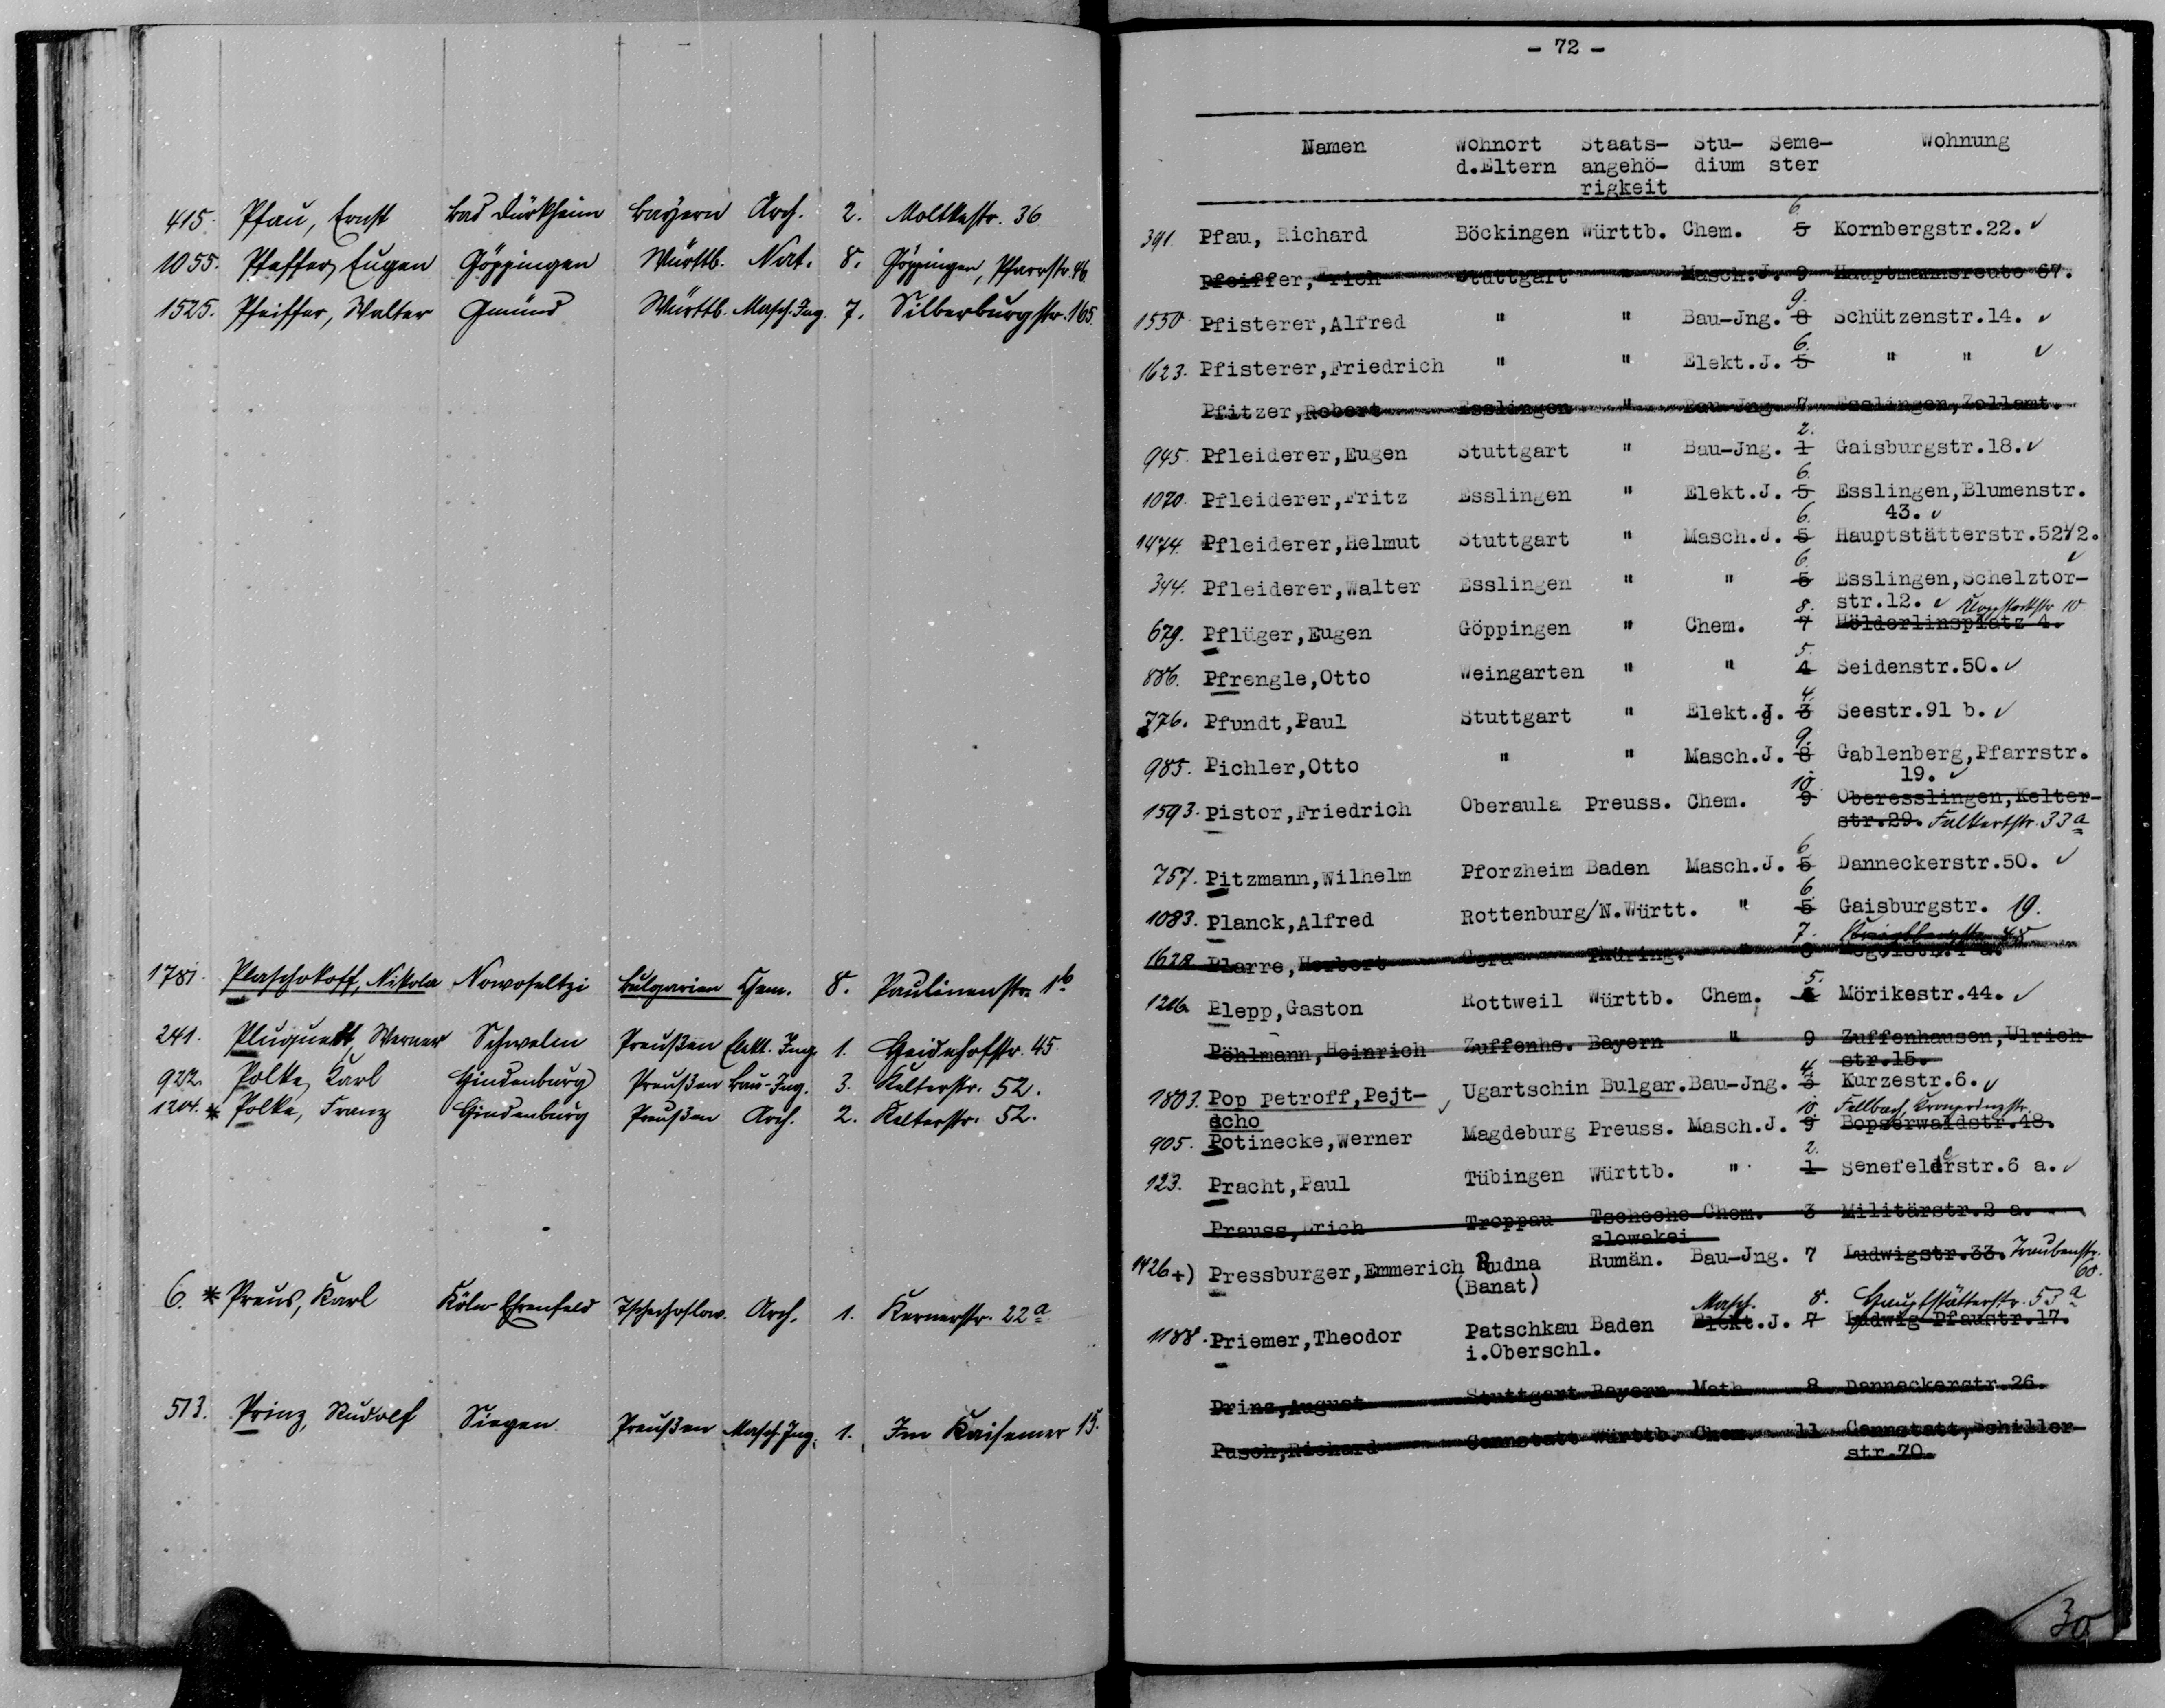 415. Pfau, Ernst Bad Dürkheim Bayern Arch. 2. Moltkestr. 36
1055. Pfeffer, Eugen Göppingen Württb. Nat. 8. Göppingen, Pfarrstr. 46
1525. Pfeiffer, Walter Gmünd Württb. Masch. Ing. 7. Silberburgstr. 165.
1781. Plaschokoff, Nikola Nowoseltzi Bulgarien Chem. 8. Paulinenstr. 1b
241. Pluquett, Werner Schwelm Preußen Elekt. Ing. 1. Heidehofstr. 45.
922. Polke, Karl Hindenburg Preußen Bau-Ing. 3. Kelterstr. 52.
1204. * Polke, Franz Hindenburg Preußen Arch. 2. Kelterstr. 52.
6. * Preus, Karl Köln-Ehrenfeld Tschechoslow. Arch. 1. Kernerstr. 22a
513. Prinz, Rudolf Siegen Preußen Masch. Ing. 1. Im Kaisemer 15.
- 72 -
Namen Wohnort Staats- Stu- Seme- Wohnung
d.Eltern angehö- dium ster
rigkeit
6.
391. Pfau, Richard Böckingen Württb. Chem. 5 Kornbergstr.22. ✓
Pfeiffer,Erich Stuttgart " Masch.J. 9 Hauptmannsreute 67.
9.
1550 Pfisterer,Alfred " " Bau-Jng. 8 Schützenstr.14. ✓
6.
1623. Pfisterer,Friedrich " " Elekt.J. 5 " " ✓
Pfitzer,Robert Esslingen " Bau-Jng. 7 Esslingen,Zollamt.
2.
945. Pfleiderer,Eugen Stuttgart " Bau-Jng. 1 Gaisburgstr.18. ✓
6.
1070. Pfleiderer,Fritz Esslingen " Elekt.J. 5 Esslingen,Blumenstr.
6. 43. ✓
1474. Pfleiderer,Helmut Stuttgart " Masch.J. 5 Hauptstätterstr.521/2.
6. ✓
344. Pfleiderer,Walter Esslingen " " 5 Esslingen,Schelztor-
8. str.12. ✓ Klopstockstr 10
679. Pflüger,Eugen Göppingen " Chem. 7 Hölderlinsplatz 4.
5.
886. Pfrengle,Otto Weingarten " " 4 Seidenstr.50. ✓
4.
776. Pfundt,Paul Stuttgart " Elekt.J. 3 Seestr.91 b. ✓
9.
985. Pichler,Otto " " Masch.J. 8 Gablenberg,Pfarrstr.
10. 19. ✓
1593. Pistor,Friedrich Oberaula Preuss. Chem. 9 Oberesslingen,Kelter-
str.29. Falkertstr. 33a
6
757. Pitzmann,Wilhelm Pforzheim Baden Masch.J. 5 Danneckerstr.50. ✓
6
1083. Planck,Alfred Rottenburg/N.Württ. " 5 Gaisburgstr. 19.
7.
1628 Plarre,Herbert Gera Thüring. "
5.
1206. Plepp,Gaston Rottweil Württb. Chem. 4 Mörikestr.44. ✓
Pöhlmann,Heinrich Zuffenhs. Bayern " 9 Zuffenhausen,Ulrich
4. str.15.
1803. Pop Petroff,Pejt- ✓ Ugartschin Bulgar. Bau-Jng. 3 Kurzestr.6. ✓
scho 10 Fellbach, Kronprinzstr.
905. Potinecke,Werner Magdeburg Preuss. Masch.J. 9 Bopserwaldstr.48.
2.
123. Pracht,Paul Tübingen Württb. " 1 Senefelderstr.6 a. ✓
Prauss,Erich Troppau Tschecho Chem. 3 Militärstr.2 a.
slowakei
1426 +) Pressburger,Emmerich Rudna Rumän. Bau-Jng. 7 Ludwigstr.33. Traubenstr.
(Banat) 60.
Masch. 8. Hauptstätterstr. 53a
1188. Priemer,Theodor Patschkau Baden Elekt.J. 7 Ludwig Pfaustr.17.
i.Oberschl.
Prinz,August Stuttgart Bayern Math. 8 Danneckerstr.26.
Pusch,Richard Cannstatt Württb. Chem. 11 Cannstatt,Schiller-
str.70.
30